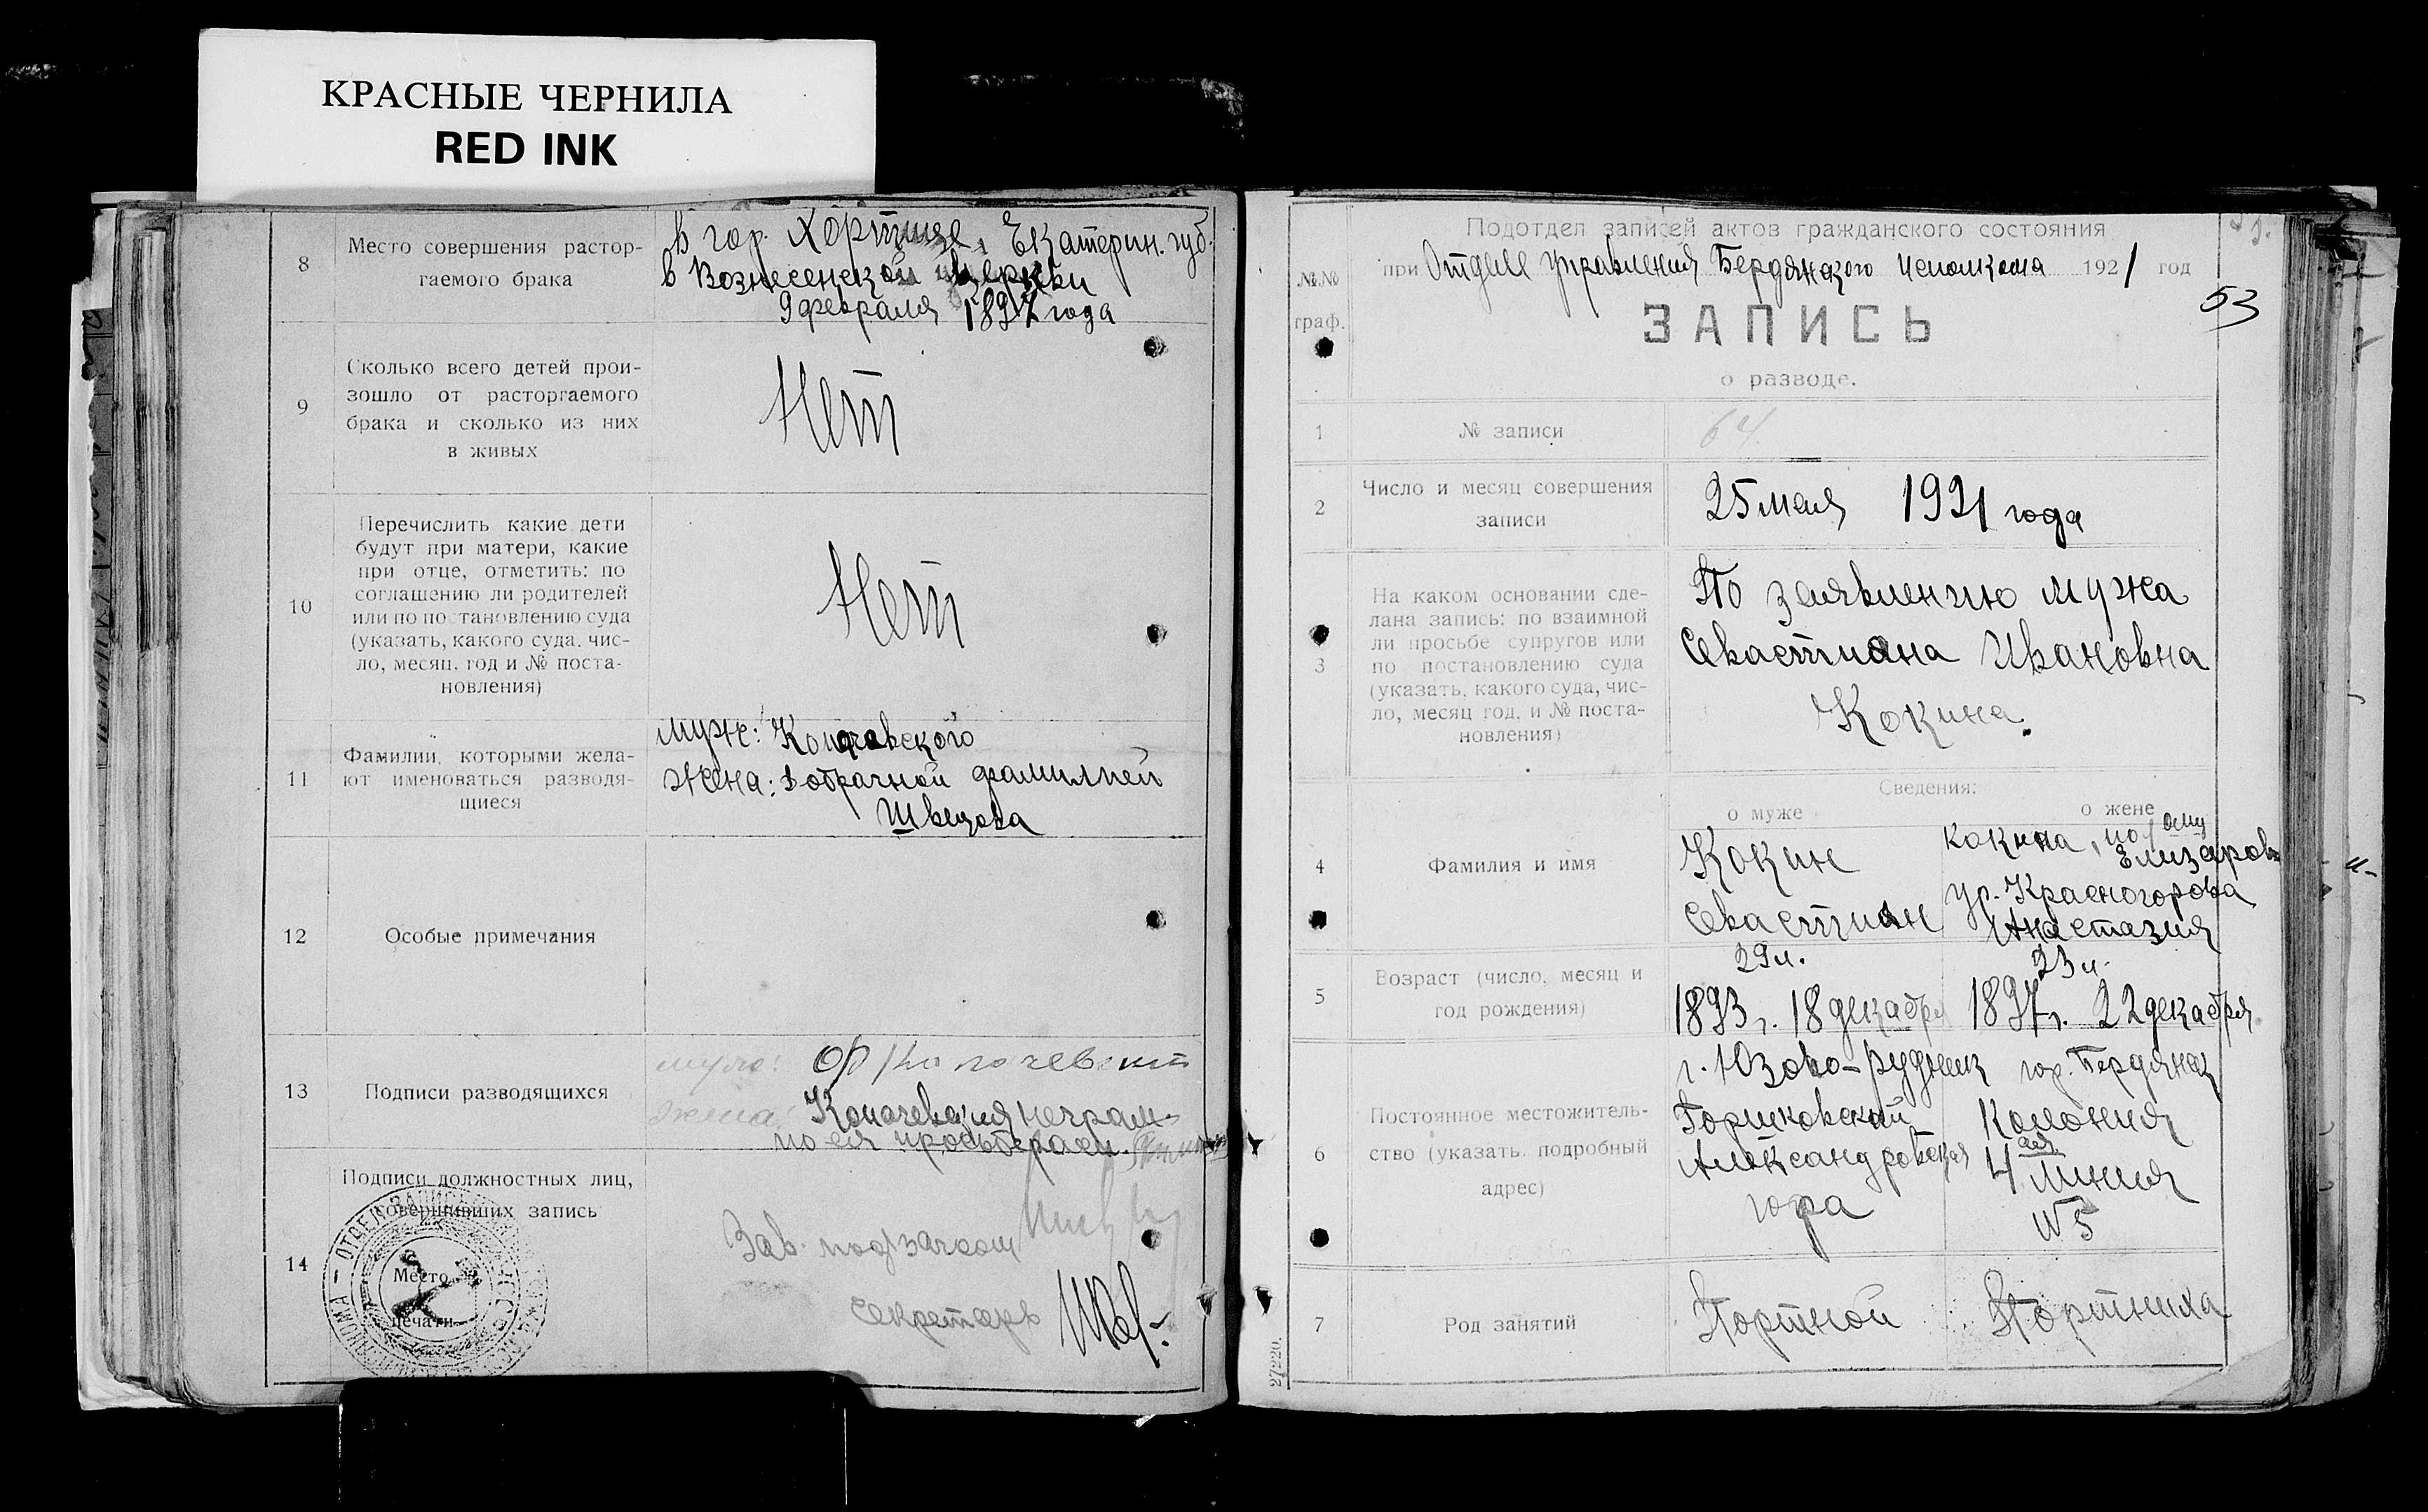 КРАСНЫЕ ЧЕРНИЛА
RED INK
8
Место совершения растор-
гаемого брака
в гор. Хортице, Екатерин. губ.
в Вознесенской церкви
9 февраля 1897 года
9
Сколько всего детей прои-
зошло от расторгаемого
брака и сколько из них
в живых
Нет
10
Перечислить какие дети
будут при матери, какие
при отце, отметить: по
соглашению ли родителей
или по постановлению суда
(указать, какого суда, чис-
ло, месяц, год и № поста-
новления)
Нет
11
Фамилии, которыми жела-
ют именоваться разводя-
щиеся
муж:
жена: добрачной фамилией
Швецова
12
Особые примечания
13
Подписи разводящихся
муж:
жена:
неграм.
по ея просьбе
14
Подписи должностных лиц,
совершивших запись
Место
печати
Зав. подзагсом
Секретарь
№№
граф.
Подотдел записей актов гражданского состояния
при Отделе Управления Бердянского исполкома 1921 год
53
ЗАПИСЬ
о разводе.
1
№ записи
64.
2
Число и месяц совершения
записи
25 мая 1921 года
3
На каком основании сде-
лана запись: по взаимной
ли просьбе супругов или
по постановлению суда
(указать, какого суда, чис-
ло, месяц, год, и № поста-
новления)
По заявлению мужа
Севастиана Ивановна
Кокина.
Сведения:
о муже
о жене
4
Фамилия и имя
Кокин
Севастиан
Кокина, по
Елизарова
ур. Красногорова
Анастазия
5
Возраст (число, месяц и
год рождения)
29 л.
1893 г. 18 декабря
23 л.
1897 г. 22 декабря
6
Постоянное местожитель-
ство (указать подробный
адрес)
г. Юзово-рудник
Горшковский
Александровская
гора
гор. Бердянск
Колония
4 ая линия
№ 5
7
Род занятий
Портной
Портниха
27220.